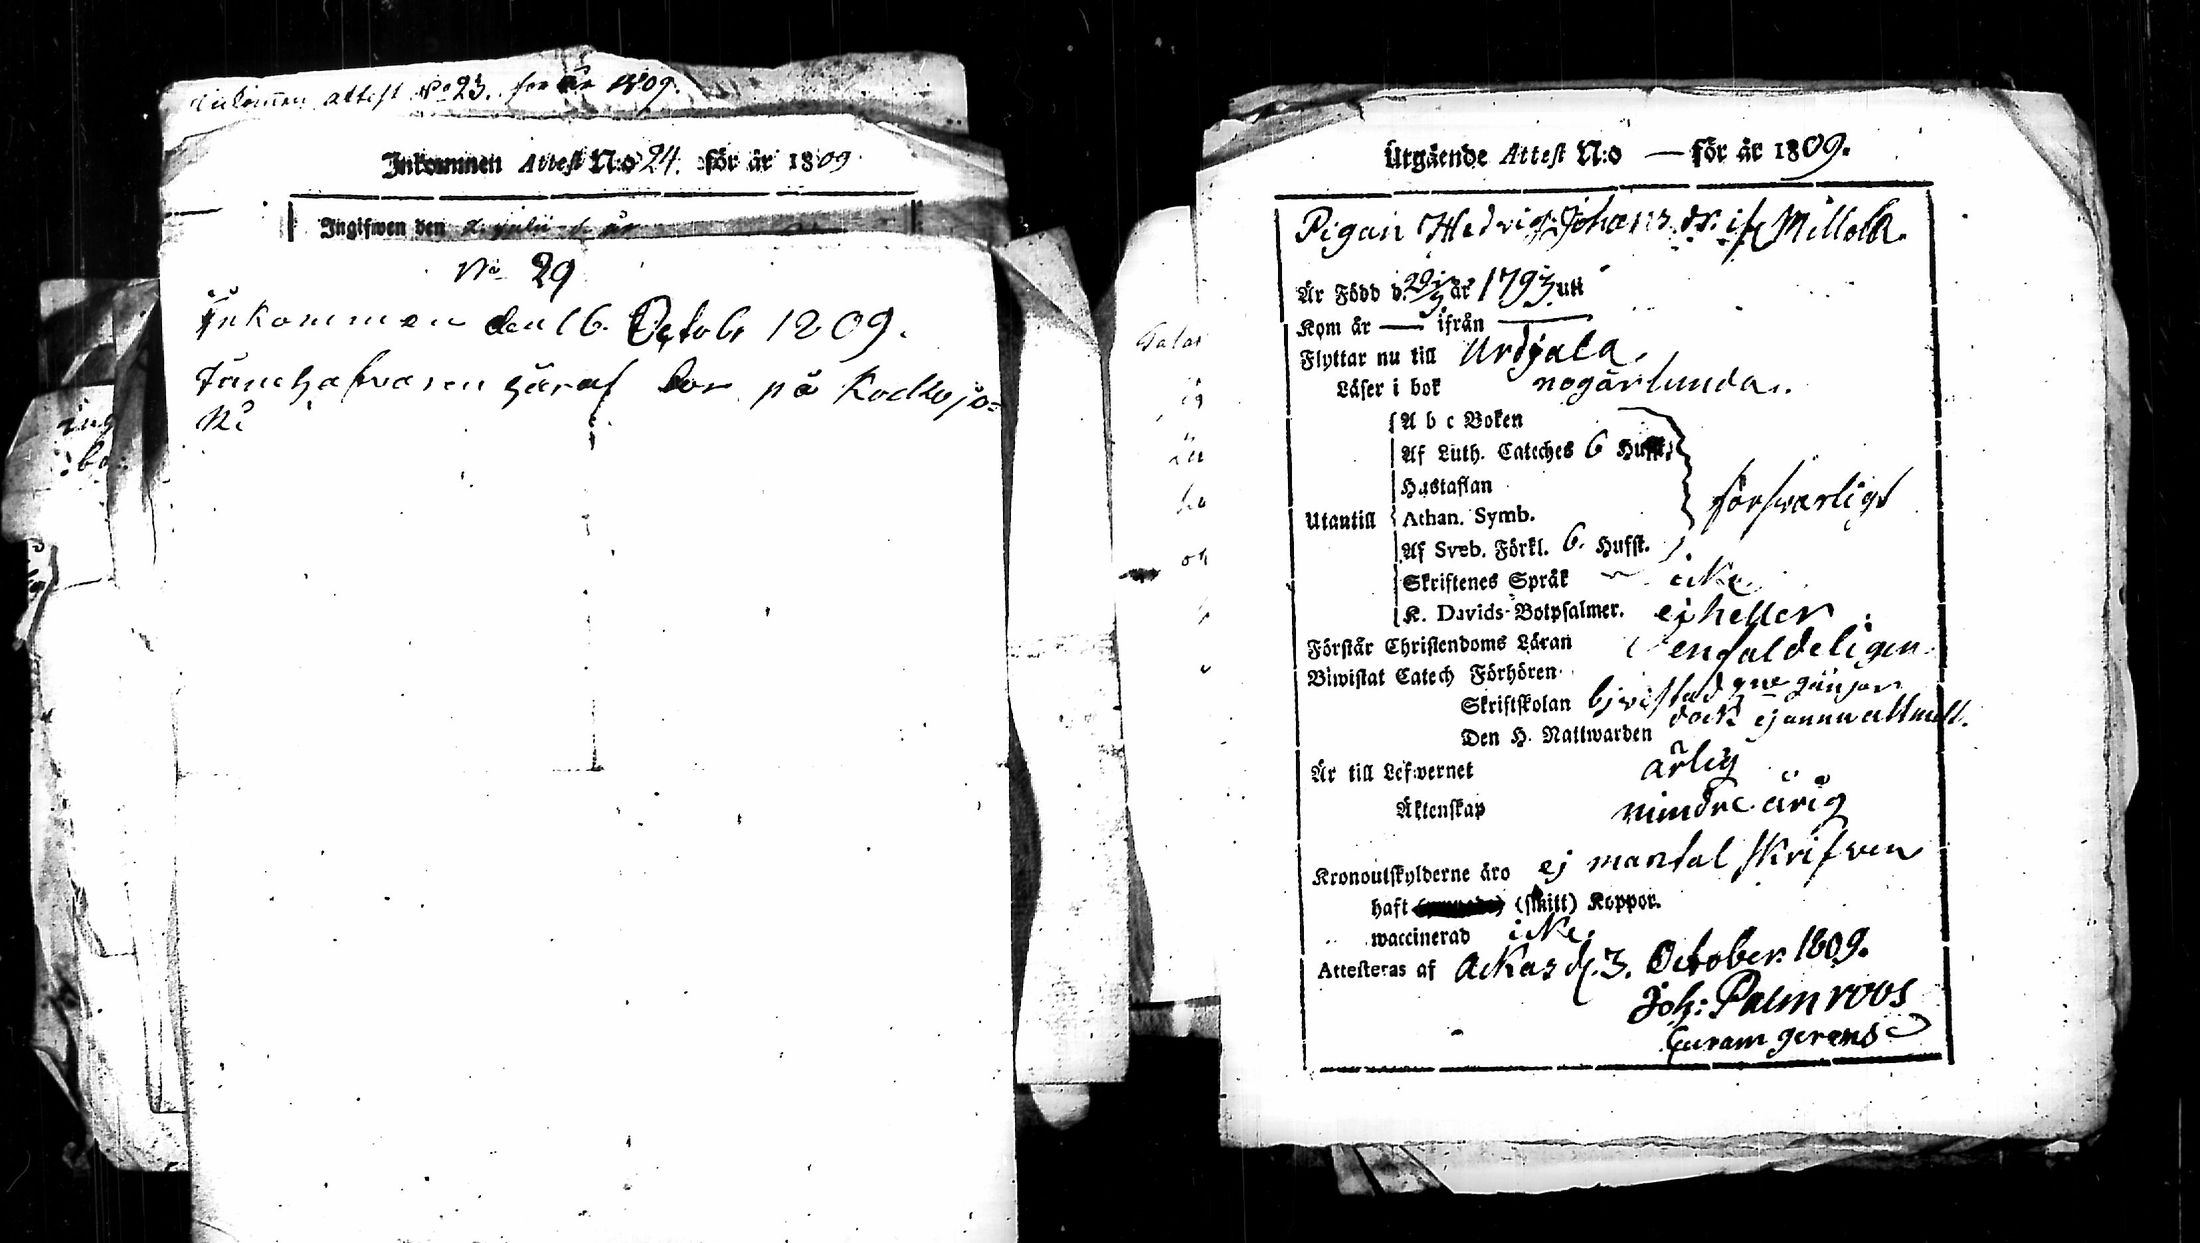 Inkommen attest No 23. för år 1809.
Inkommen Attest N:o 24. för år 1809
Ingifwen den 2 Julii d. år
No 29
Inkommen den 16. Octobr 1809.
innehafwaren häraf bor på Kodkojo=
ki
Utgående Attest N:o — för år 1809.
Pigan Hedvig Johans dr. if. Millola.
Är Född d. 29/3 år 1793 uti
Kom år — ifrån —
Flyttar nu till Urdjala.
Läser i bok någorlunda.
A b c Boken
Af Luth. Cateches 6 Hufst.
Hustaflan
Utantill Athan. Symb. försvarligt
Af Sveb. Förkl. 6. Hufst.
Skriftenes Språk icke
K. Davids-Botpsalmer. ej heller
Förstår Christendoms Läran enfaldeligen
Biwistat Catech Förhören
Skriftskolan bivistad gånger
Den H. Nattwarden dock ej ännu admitt.
Är till Lefwernet ärlig
Äktenskap mindre årig
Kronoutskylderne äro ej mantal skrifven
haft (smitt) Koppor.
waccinerad icke.
Attesteras af Ackas d. 3. October. 1809.
Joh: Palmroos
Curam gerens